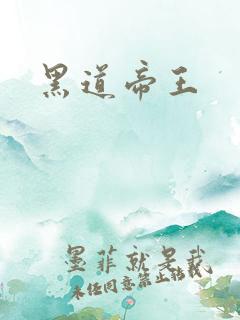 黑道帝王
墨菲就是我
未经同意禁止转载